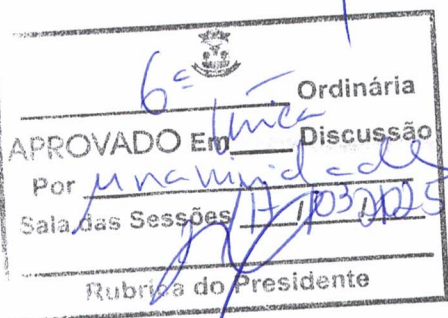 6ª Ordinária
APROVADO Em Única Discussão
Por unanimidade
Sala das Sessões 17/03/2025
Rubrica do Presidente